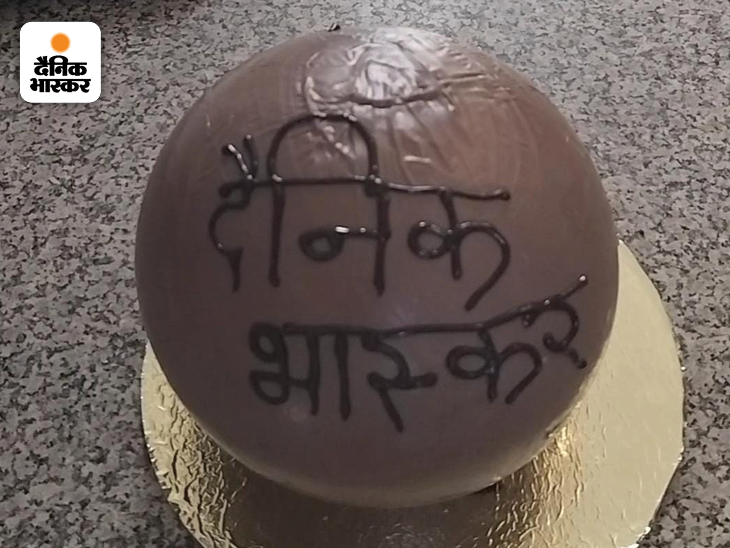 दैनिक
भास्कर
दैनिक
भास्कर